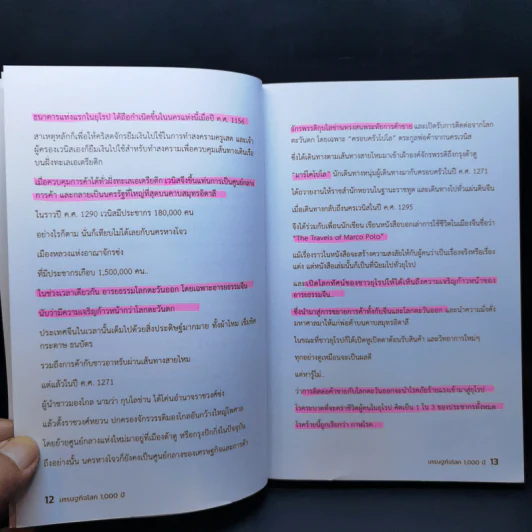 ธนาคารแห่งแรกในยุโรป ได้ถือกำเนิดขึ้นในนครแห่งนี้เมื่อปี ค.ศ. 1156
สาเหตุหลักก็เพื่อให้คริสตจักรยืมเงินไปใช้ในการทำสงครามครูเสด และเจ้า
ผู้ครองเวนิสเองก็ยืมเงินไปใช้สำหรับทำสงครามเพื่อควบคุมเส้นทางเดินเรือ
บนฝั่งทะเลเอเดรียติก
เมื่อควบคุมการค้าได้ทั่วฝั่งทะเลเอเดรียติก เวนิสจึงขึ้นแท่นการเป็นศูนย์กลาง
การค้า และกลายเป็นนครรัฐที่ใหญ่ที่สุดบนคาบสมุทรอิตาลี
ในราวปี ค.ศ. 1290 เวนิสมีประชากร 180,000 คน
อย่างไรก็ตาม นั่นก็เทียบไม่ได้เลยกับนครหางโจว
เมืองหลวงแห่งอาณาจักรซ่ง
ที่มีประชากรเกือบ 1,500,000 คน..
ในช่วงเวลาเดียวกัน อารยธรรมโลกตะวันออก โดยเฉพาะอารยธรรมจีน
นับว่ามีความเจริญก้าวหน้ากว่าโลกตะวันตก
ประเทศจีนในเวลานั้นเต็มไปด้วยสิ่งประดิษฐ์มากมาย ทั้งผ้าไหม เข็มทิศ
กระดาษ ธนบัตร
รวมถึงการค้ากับชาวอาหรับผ่านเส้นทางสายไหม
แต่แล้วในปี ค.ศ. 1271
ผู้นำชาวมองโกล นามว่า กุบไลข่าน ได้โค่นอำนาจราชวงศ์ซ่ง
แล้วตั้งราชวงศ์หยวน ปกครองจักรวรรดิมองโกลอันกว้างใหญ่ไพศาล
โดยย้ายศูนย์กลางแห่งใหม่มาอยู่ที่เมืองต้าตู หรือกรุงปักกิ่งในปัจจุบัน
ถึงอย่างนั้น นครหางโจวก็ยังคงเป็นศูนย์กลางของเศรษฐกิจและการค้า
12 เศรษฐกิจโลก 1,000 ปี
จักรพรรดิกุบไลข่านทรงสนพระทัยการค้าขาย และเปิดรับการติดต่อจากโลก
ตะวันตก โดยเฉพาะ "ครอบครัวโปโล" ตระกูลพ่อค้าจากนครเวนิส
ซึ่งได้เดินทางตามเส้นทางสายไหมมาเข้าเฝ้าองค์จักรพรรดิถึงกรุงต้าตู
"มาร์โคโปโล" นักเดินทางหนุ่มผู้เดินทางมากับครอบครัวในปี ค.ศ. 1271
ได้ถวายงานให้ราชสำนักหยวนในฐานะราชทูต และเดินทางไปทั่วแผ่นดินจีน
เมื่อเดินทางกลับถึงนครเวนิสในปี ค.ศ. 1295
จึงได้ร่วมกับเพื่อนนักเขียน เขียนหนังสือบอกเล่าการใช้ชีวิตในเมืองจีนชื่อว่า
"The Travels of Marco Polo"
แม้เรื่องราวในหนังสือจะสร้างความสงสัยให้กับผู้คนว่าเป็นเรื่องจริงหรือเรื่อง
แต่ง แต่หนังสือเล่มนั้นก็เป็นที่นิยมไปทั่วยุโรป
และเปิดโลกทัศน์ของชาวยุโรปให้ได้เห็นถึงความเจริญก้าวหน้าของ
อารยธรรมจีน..
ซึ่งนำมาสู่การขยายการค้าทั้งกับจีนและโลกตะวันออก และนำความมั่งคั่ง
มหาศาลมาให้แก่พ่อค้าบนคาบสมุทรอิตาลี
ในขณะที่ชาวยุโรปก็ได้เปิดหูเปิดตาต้อนรับสินค้า และวิทยาการใหม่ๆ
ทุกอย่างดูเหมือนจะเป็นผลดี
แต่หารู้ไม่..
ว่าการติดต่อค้าขายกับโลกตะวันออกจะนำโรคภัยร้ายแรงเข้ามาสู่ยุโรป
โรคระบาดที่จะคร่าชีวิตผู้คนในยุโรป คิดเป็น 1 ใน 3 ของประชากรทั้งหมด
โรคร้ายนี้ถูกเรียกว่า กาฬโรค..
เศรษฐกิจโลก 1,000 ปี 13